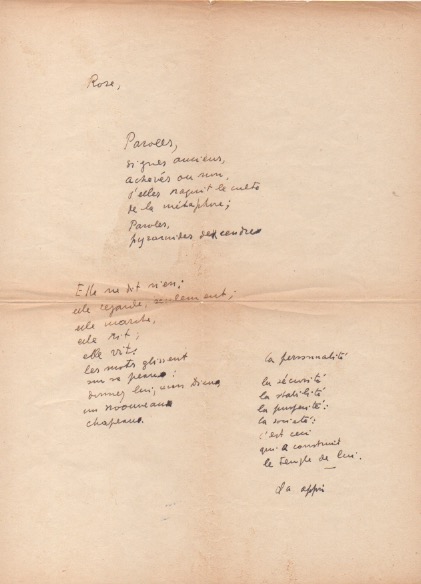 Rose,
Paroles,
signes anciens,
achevés ou non,
d'elles naquit le culte
de la métaphore;
Paroles,
pyramides de cendre
Elle ne dit rien;
elle regarde, seulement;
elle marche,
elle rit;
elle vit;
les mots glissent
sur sa peau:
donnez lui, mon Dieu,
un nouveau
chapeau.
la personnalité
la sécurité
la stabilité
la propreté:
la société:
c'est ceci
qui a construit
le temple de lui.